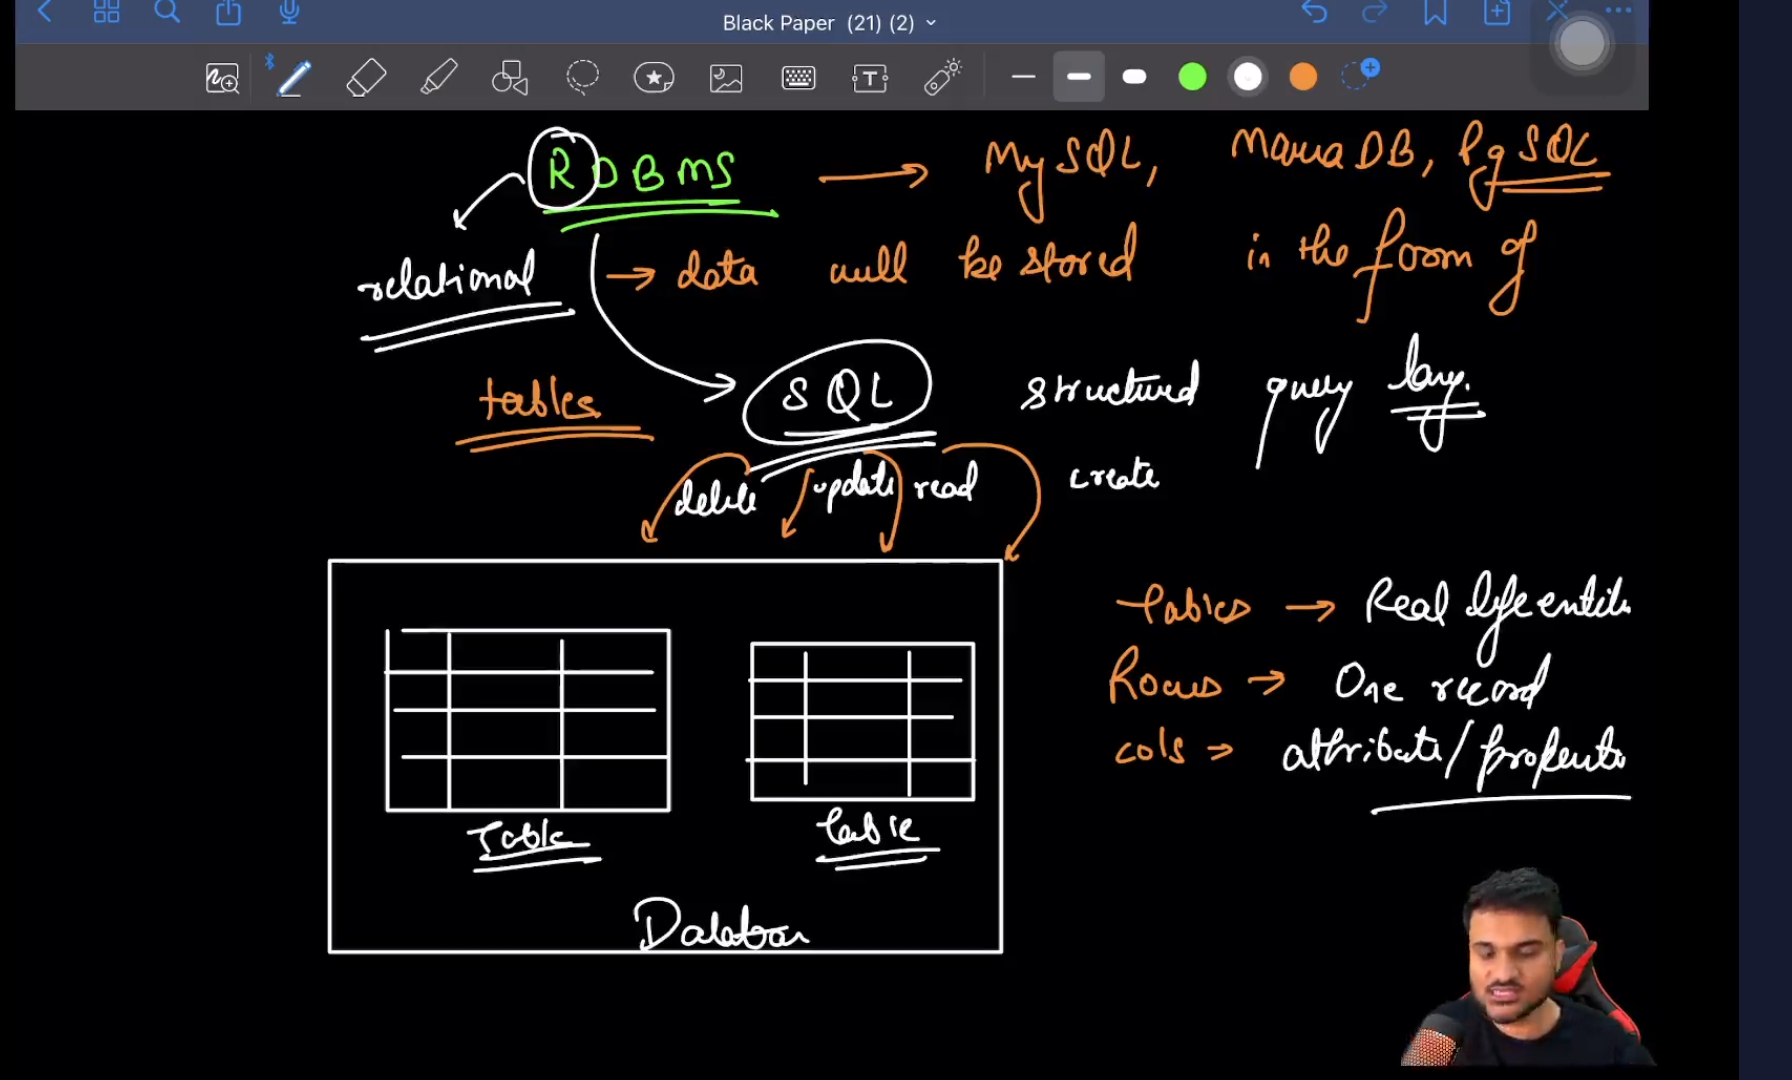 Black Paper (21) (2)
RDBMS → MySQL, MariaDB, PgSQL
relational → data will be stored in the form of
tables SQL structured query lang.
delete update read create
Tables → Real life entity
Rows → One record
cols → attribute/property
Table Table
Database